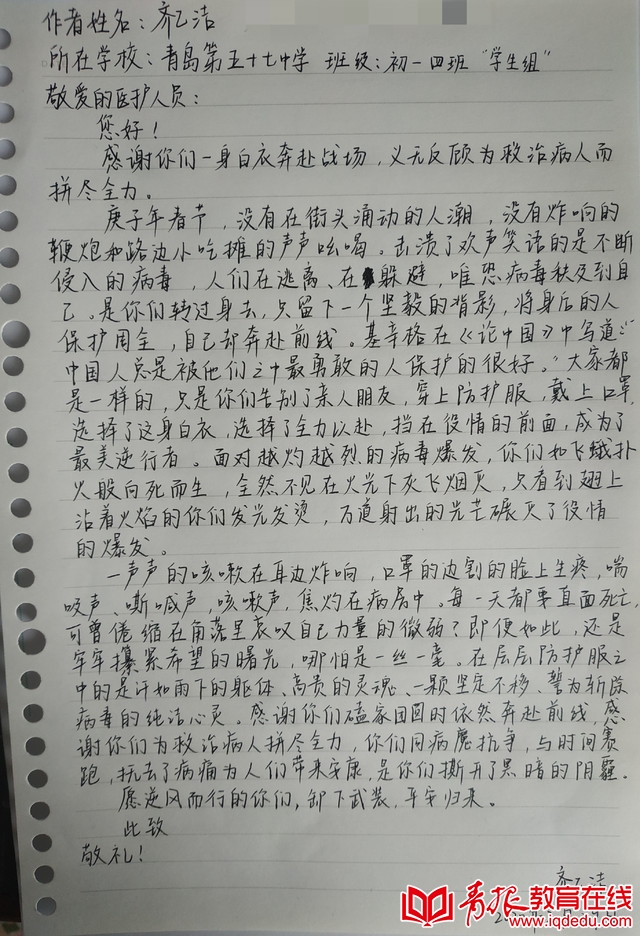 作者姓名：齐乙洁
所在学校：青岛第五十七中学 班级：初一四班 "学生组"
敬爱的医护人员：
您好！
感谢你们一身白衣奔赴战场，义无反顾为救治病人而
拼尽全力。
庚子年春节，没有在街头涌动的人潮，没有炸响的
鞭炮和路边小吃摊的声声吆喝。击溃了欢声笑语的是不断
侵入的病毒，人们在逃离、在躲避，唯恐病毒秧及到自
己。是你们转过身去，只留下一个坚毅的背影，将身后的人
保护周全，自己却奔赴前线。基辛格在《论中国》中写道："
中国人总是被他们之中最勇敢的人保护的很好。"大家都
是一样的，只是你们告别了亲人朋友，穿上防护服，戴上口罩，
选择了这身白衣，选择了全力以赴，挡在役情的前面，成为了
最美逆行者。面对越灼越烈的病毒爆发，你们如飞蛾扑
火般向死而生，全然不见在火光下灰飞烟灭，只看到翅上
沾着火焰的你们发光发烫，万道射出的光芒碾灭了役情
的爆发。
一声声的咳嗽在耳边炸响，口罩的边割的脸上生疼，喘
吸声、嘶喊声，咳嗽声，焦灼在病房中。每一天都要直面死亡，
可曾倦缩在角落里哀叹自己力量的微弱？即便如此，还是
牢牢攥紧希望的曙光，哪怕是一丝一毫。在层层防护服之
中的是汗如雨下的躯体、高贵的灵魂、一颗坚定不移、誓为斩除
病毒的纯洁心灵。感谢你们阖家团圆时依然奔赴前线，感
谢你们为救治病人拼尽全力，你们同病魔抗争，与时间赛
跑，抗去了病痛为人们带来安康，是你们撕开了黑暗的阴霾。
愿逆风而行的你们，卸下武装，平安归来。
此致
敬礼！
齐乙洁
青报教育在线
www.iqdedu.com